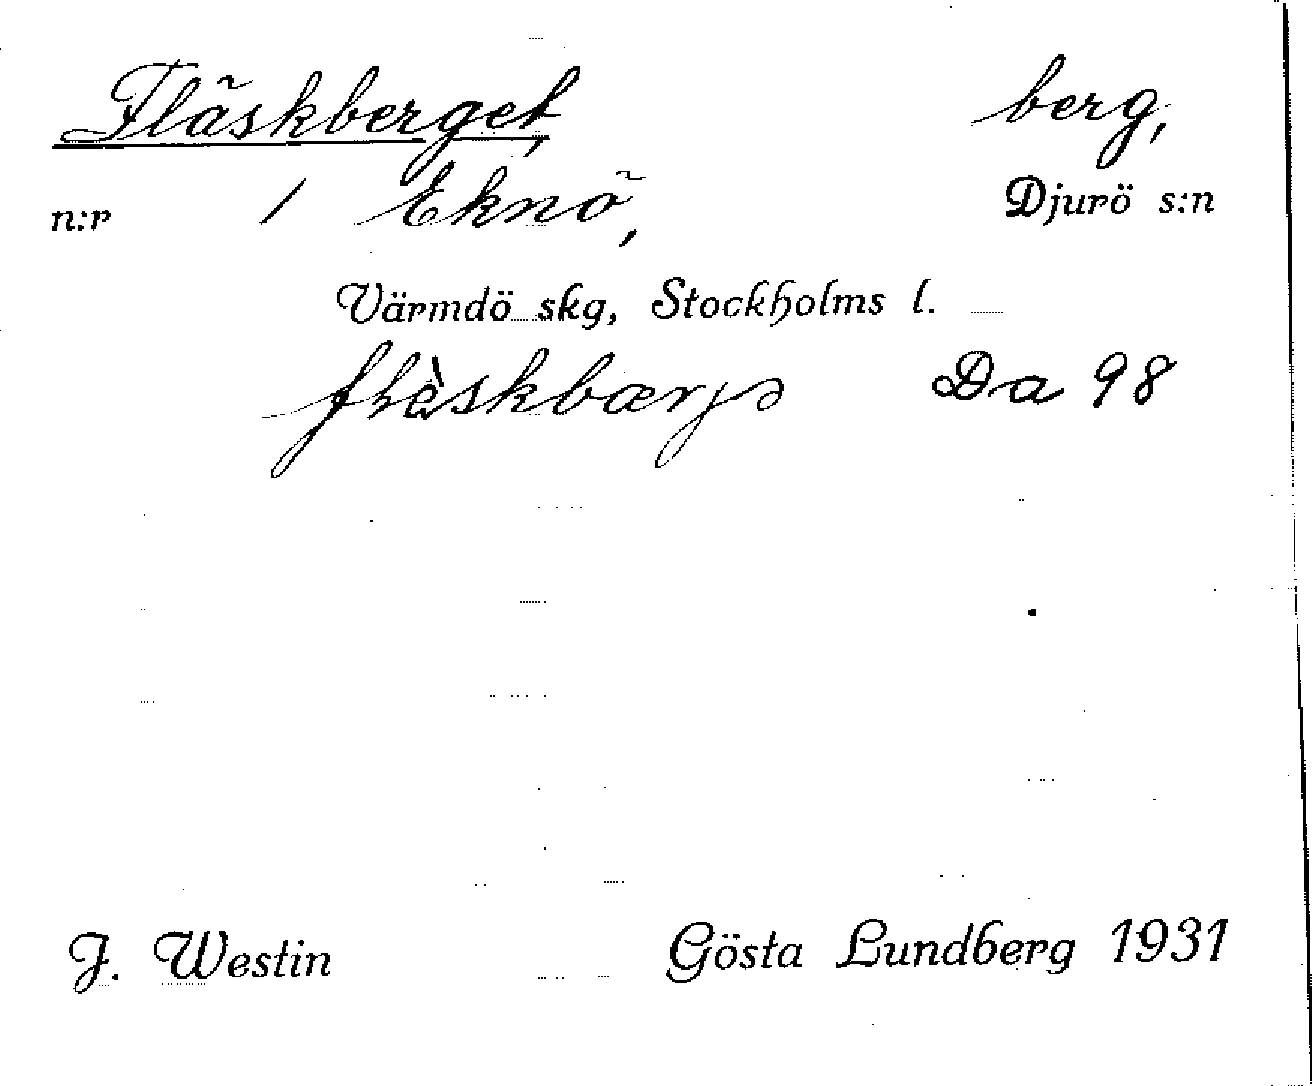 Fläskberget, berg,
n:r 1 Eknö, Djurö s:n
Värmdö skg, Stockholms l.
Da 98
J. Westin Gösta Lundberg 1931